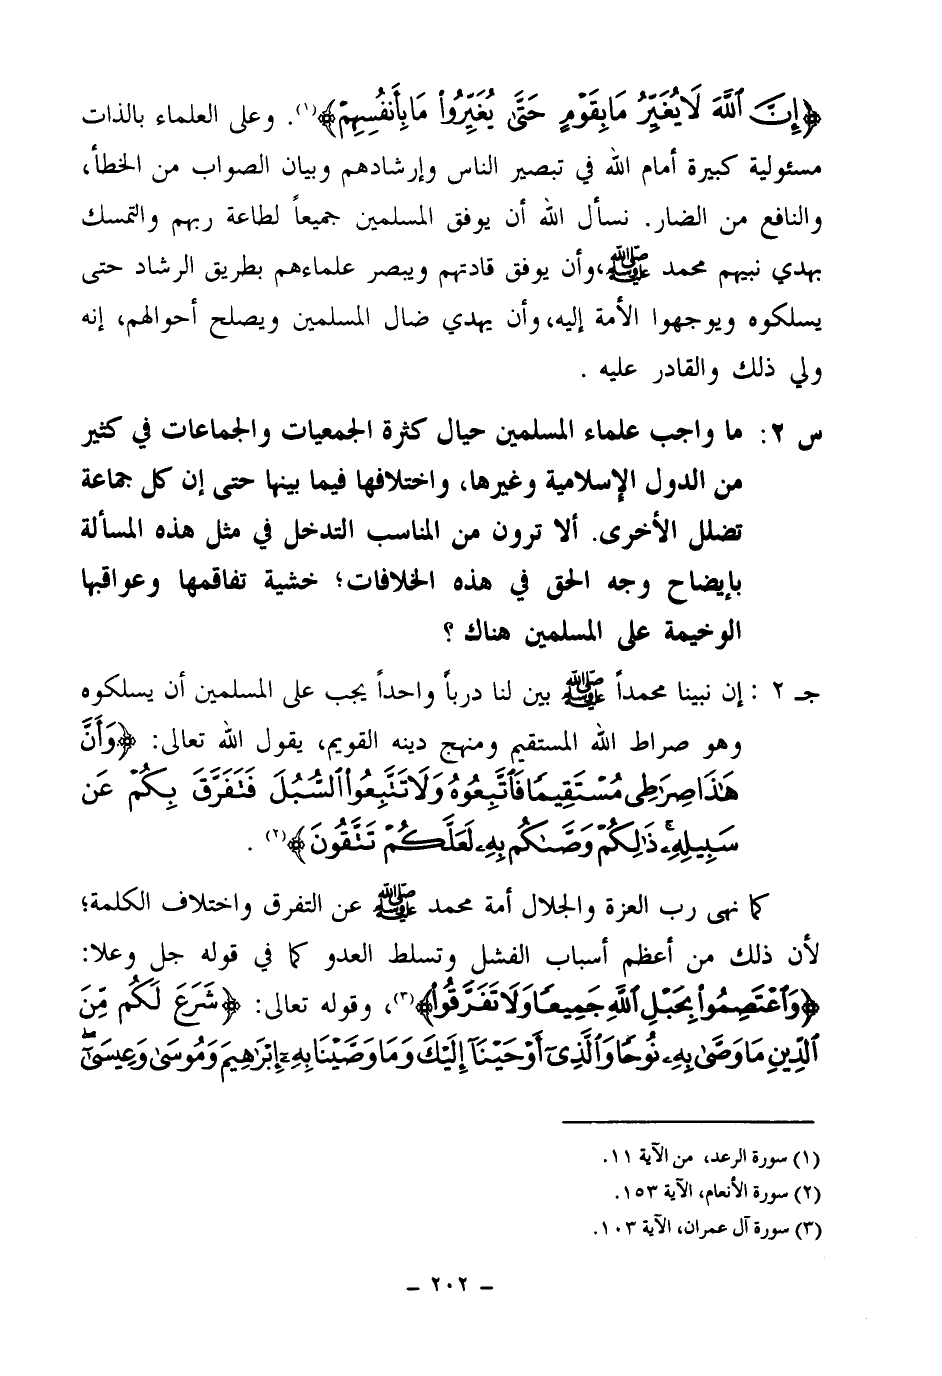 ﴿إِنَّ ٱللَّهَ لَا يُغَيِّرُ مَا بِقَوْمٍ حَتَّىٰ يُغَيِّرُوا۟ مَا بِأَنفُسِهِمْ﴾(١). وعلى العلماء بالذات
مسئولية كبيرة أمام الله في تبصير الناس وإرشادهم وبيان الصواب من الخطأ،
والنافع من الضار. نسأل الله أن يوفق المسلمين جميعاً لطاعة ربهم والتمسك
بهدي نبيهم محمد ﷺ،وأن يوفق قادتهم ويبصر علماءهم بطريق الرشاد حتى
يسلكوه ويوجهوا الأمة إليه،وأن يهدي ضال المسلمين ويصلح أحوالهم، إنه
ولي ذلك والقادر عليه .
س ٢: ما واجب علماء المسلمين حيال كثرة الجمعيات والجماعات في كثير
من الدول الإسلامية وغيرها، واختلافها فيما بينها حتى إن كل جماعة
تضلل الأخرى. ألا ترون من المناسب التدخل في مثل هذه المسألة
بإيضاح وجه الحق في هذه الخلافات؛ خشية تفاقمها وعواقبها
الوخيمة على المسلمين هناك ؟
جـ ٢ : إن نبينا محمداً ﷺ بين لنا درباً واحداً يجب على المسلمين أن يسلكوه
وهو صراط الله المستقيم ومنهج دينه القويم، يقول الله تعالى: ﴿وَأَنَّ
هَٰذَا صِرَٰطِى مُسْتَقِيمًا فَٱتَّبِعُوهُ وَلَا تَتَّبِعُوا۟ ٱلسُّبُلَ فَتَفَرَّقَ بِكُمْ عَن
سَبِيلِهِۦ ۚ ذَٰلِكُمْ وَصَّىٰكُم بِهِۦ لَعَلَّكُمْ تَتَّقُونَ﴾(٢) .
كما نهى رب العزة والجلال أمة محمد ﷺ عن التفرق واختلاف الكلمة؛
لأن ذلك من أعظم أسباب الفشل وتسلط العدو كما في قوله جل وعلا:
﴿وَٱعْتَصِمُوا۟ بِحَبْلِ ٱللَّهِ جَمِيعًا وَلَا تَفَرَّقُوا۟﴾(٣)، وقوله تعالى: ﴿شَرَعَ لَكُم مِّنَ
ٱلدِّينِ مَا وَصَّىٰ بِهِۦ نُوحًا وَٱلَّذِىٓ أَوْحَيْنَآ إِلَيْكَ وَمَا وَصَّيْنَا بِهِۦٓ إِبْرَٰهِيمَ وَمُوسَىٰ وَعِيسَىٰٓ ۖ
(١) سورة الرعد، من الآية ١١.
(٢) سورة الأنعام، الآية ١٥٣.
(٣) سورة آل عمران، الآية ١٠٣.
– ٢٠٢ –